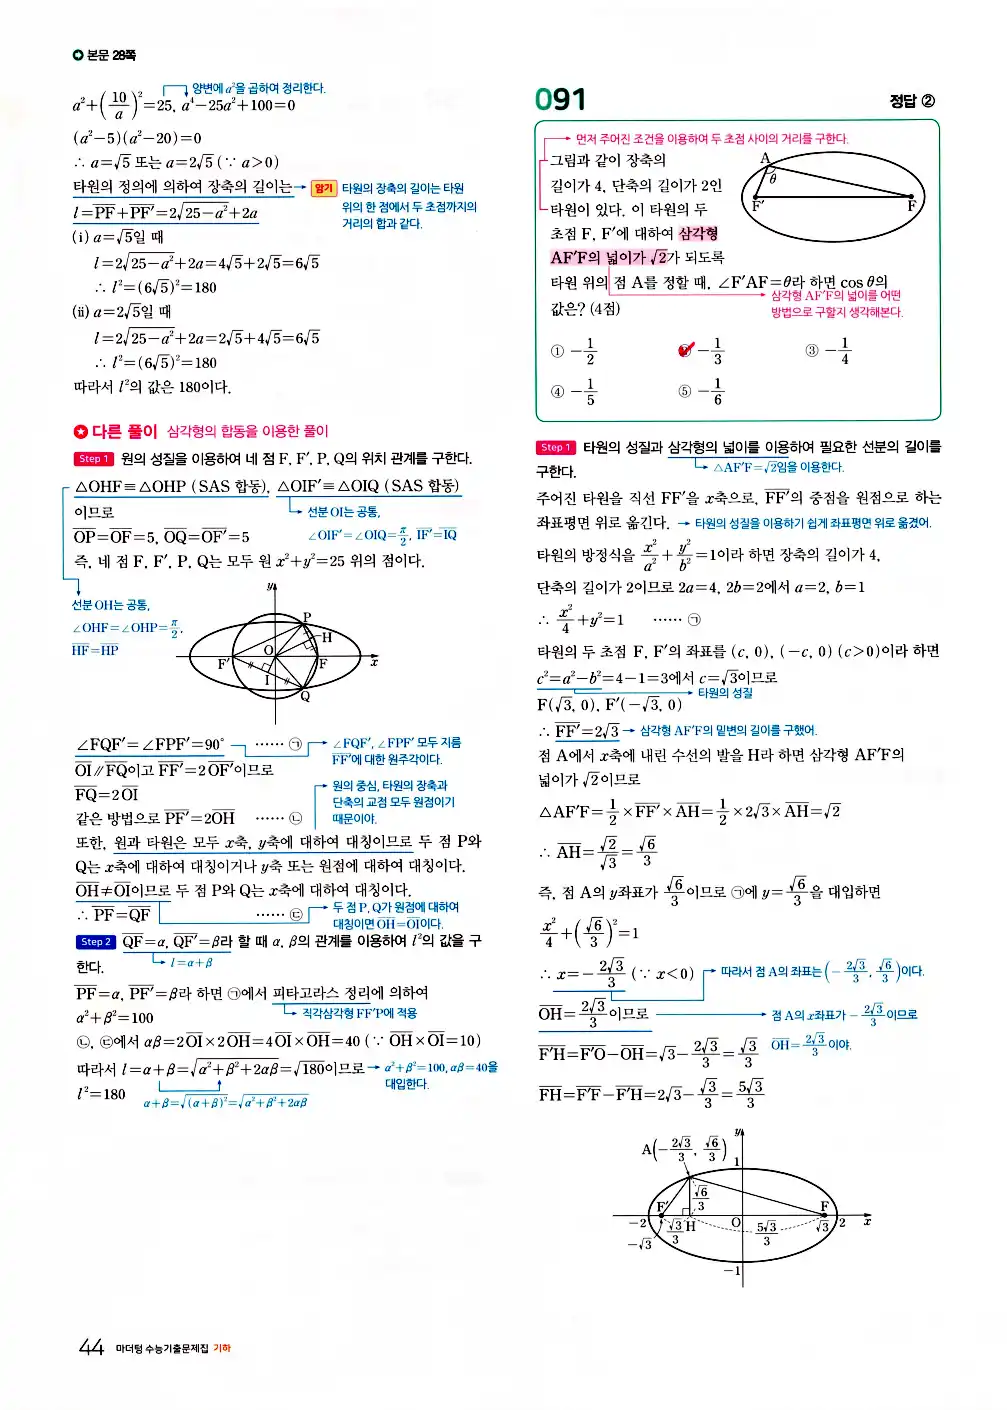 본문 28쪽
양변에 a²을 곱하여 정리한다.
a²+(10/a)²=25, a⁴-25a²+100=0
(a²-5)(a²-20)=0
∴ a=√5 또는 a=2√5 (∵ a>0)
타원의 정의에 의하여 장축의 길이는 → 암기 타원의 장축의 길이는 타원
위의 한 점에서 두 초점까지의
거리의 합과 같다.
l=PF+PF'=2√(25-a²)+2a
(i) a=√5일 때
l=2√(25-a²)+2a=4√5+2√5=6√5
∴ l²=(6√5)²=180
(ii) a=2√5일 때
l=2√(25-a²)+2a=2√5+4√5=6√5
∴ l²=(6√5)²=180
따라서 l²의 값은 180이다.
다른 풀이 삼각형의 합동을 이용한 풀이
Step 1 원의 성질을 이용하여 네 점 F, F', P, Q의 위치 관계를 구한다.
△OHF≡△OHP (SAS 합동), △OIF'≡△OIQ (SAS 합동)
이므로
선분 OI는 공통,
∠OIF'=∠OIQ=π/2, IF'=IQ
OP=OF=5, OQ=OF'=5
즉, 네 점 F, F', P, Q는 모두 원 x²+y²=25 위의 점이다.
선분 OH는 공통,
∠OHF=∠OHP=π/2,
HF=HP
y
P
H
O
F'
F
x
I
Q
∠FQF'=∠FPF'=90° …… ㉠
∠FQF', ∠FPF' 모두 지름
FF'에 대한 원주각이다.
OI∥FQ이고 FF'=2OF'이므로
FQ=2OI
원의 중심, 타원의 장축과
단축의 교점 모두 원점이기
때문이야.
같은 방법으로 PF'=2OH …… ㉡
또한, 원과 타원은 모두 x축, y축에 대하여 대칭이므로 두 점 P와
Q는 x축에 대하여 대칭이거나 y축 또는 원점에 대하여 대칭이다.
OH≠OI이므로 두 점 P와 Q는 x축에 대하여 대칭이다.
∴ PF=QF …… ㉢
두 점 P, Q가 원점에 대하여
대칭이면 OH=OI이다.
Step 2 QF=α, QF'=β라 할 때 α, β의 관계를 이용하여 l²의 값을 구
한다.
l=α+β
PF=α, PF'=β라 하면 ㉠에서 피타고라스 정리에 의하여
α²+β²=100
직각삼각형 FF'P에 적용
㉡, ㉢에서 αβ=2OI×2OH=4OI×OH=40 (∵ OH×OI=10)
따라서 l=α+β=√(α²+β²+2αβ)=√180이므로 → α²+β²=100, αβ=40을
대입한다.
l²=180
α+β=√(α+β)²=√(α²+β²+2αβ)
44 마더텅 수능기출문제집 기하
091
정답 ②
먼저 주어진 조건을 이용하여 두 초점 사이의 거리를 구한다.
그림과 같이 장축의
길이가 4, 단축의 길이가 2인
타원이 있다. 이 타원의 두
초점 F, F'에 대하여 삼각형
AF'F의 넓이가 √2가 되도록
타원 위의 점 A를 정할 때, ∠F'AF=θ라 하면 cos θ의
값은? (4점)
삼각형 AF'F의 넓이를 어떤
방법으로 구할지 생각해본다.
A
θ
F'
F
① -1/2
-1/3
③ -1/4
④ -1/5
⑤ -1/6
Step 1 타원의 성질과 삼각형의 넓이를 이용하여 필요한 선분의 길이를
구한다.
△AF'F=√2임을 이용한다.
주어진 타원을 직선 FF'을 x축으로, FF'의 중점을 원점으로 하는
좌표평면 위로 옮긴다. → 타원의 성질을 이용하기 쉽게 좌표평면 위로 옮겼어.
타원의 방정식을 x²/a²+y²/b²=1이라 하면 장축의 길이가 4,
단축의 길이가 2이므로 2a=4, 2b=2에서 a=2, b=1
∴ x²/4+y²=1 …… ㉠
타원의 두 초점 F, F'의 좌표를 (c, 0), (-c, 0) (c>0)이라 하면
c²=a²-b²=4-1=3에서 c=√3이므로
타원의 성질
F(√3, 0), F'(-√3, 0)
∴ FF'=2√3 → 삼각형 AF'F의 밑변의 길이를 구했어.
점 A에서 x축에 내린 수선의 발을 H라 하면 삼각형 AF'F의
넓이가 √2이므로
△AF'F=1/2×FF'×AH=1/2×2√3×AH=√2
∴ AH=√2/√3=√6/3
즉, 점 A의 y좌표가 √6/3이므로 ㉠에 y=√6/3을 대입하면
x²/4+(√6/3)²=1
∴ x=-2√3/3 (∵ x<0) 따라서 점 A의 좌표는 (-2√3/3, √6/3)이다.
OH=2√3/3이므로 → 점 A의 x좌표가 -2√3/3이므로
OH=2√3/3이야.
F'H=F'O-OH=√3-2√3/3=√3/3
FH=F'F-F'H=2√3-√3/3=5√3/3
y
A(-2√3/3, √6/3)
1
√6/3
F'
F
-2
√3/3
H
O
5√3/3
√3
2
x
-√3
-1